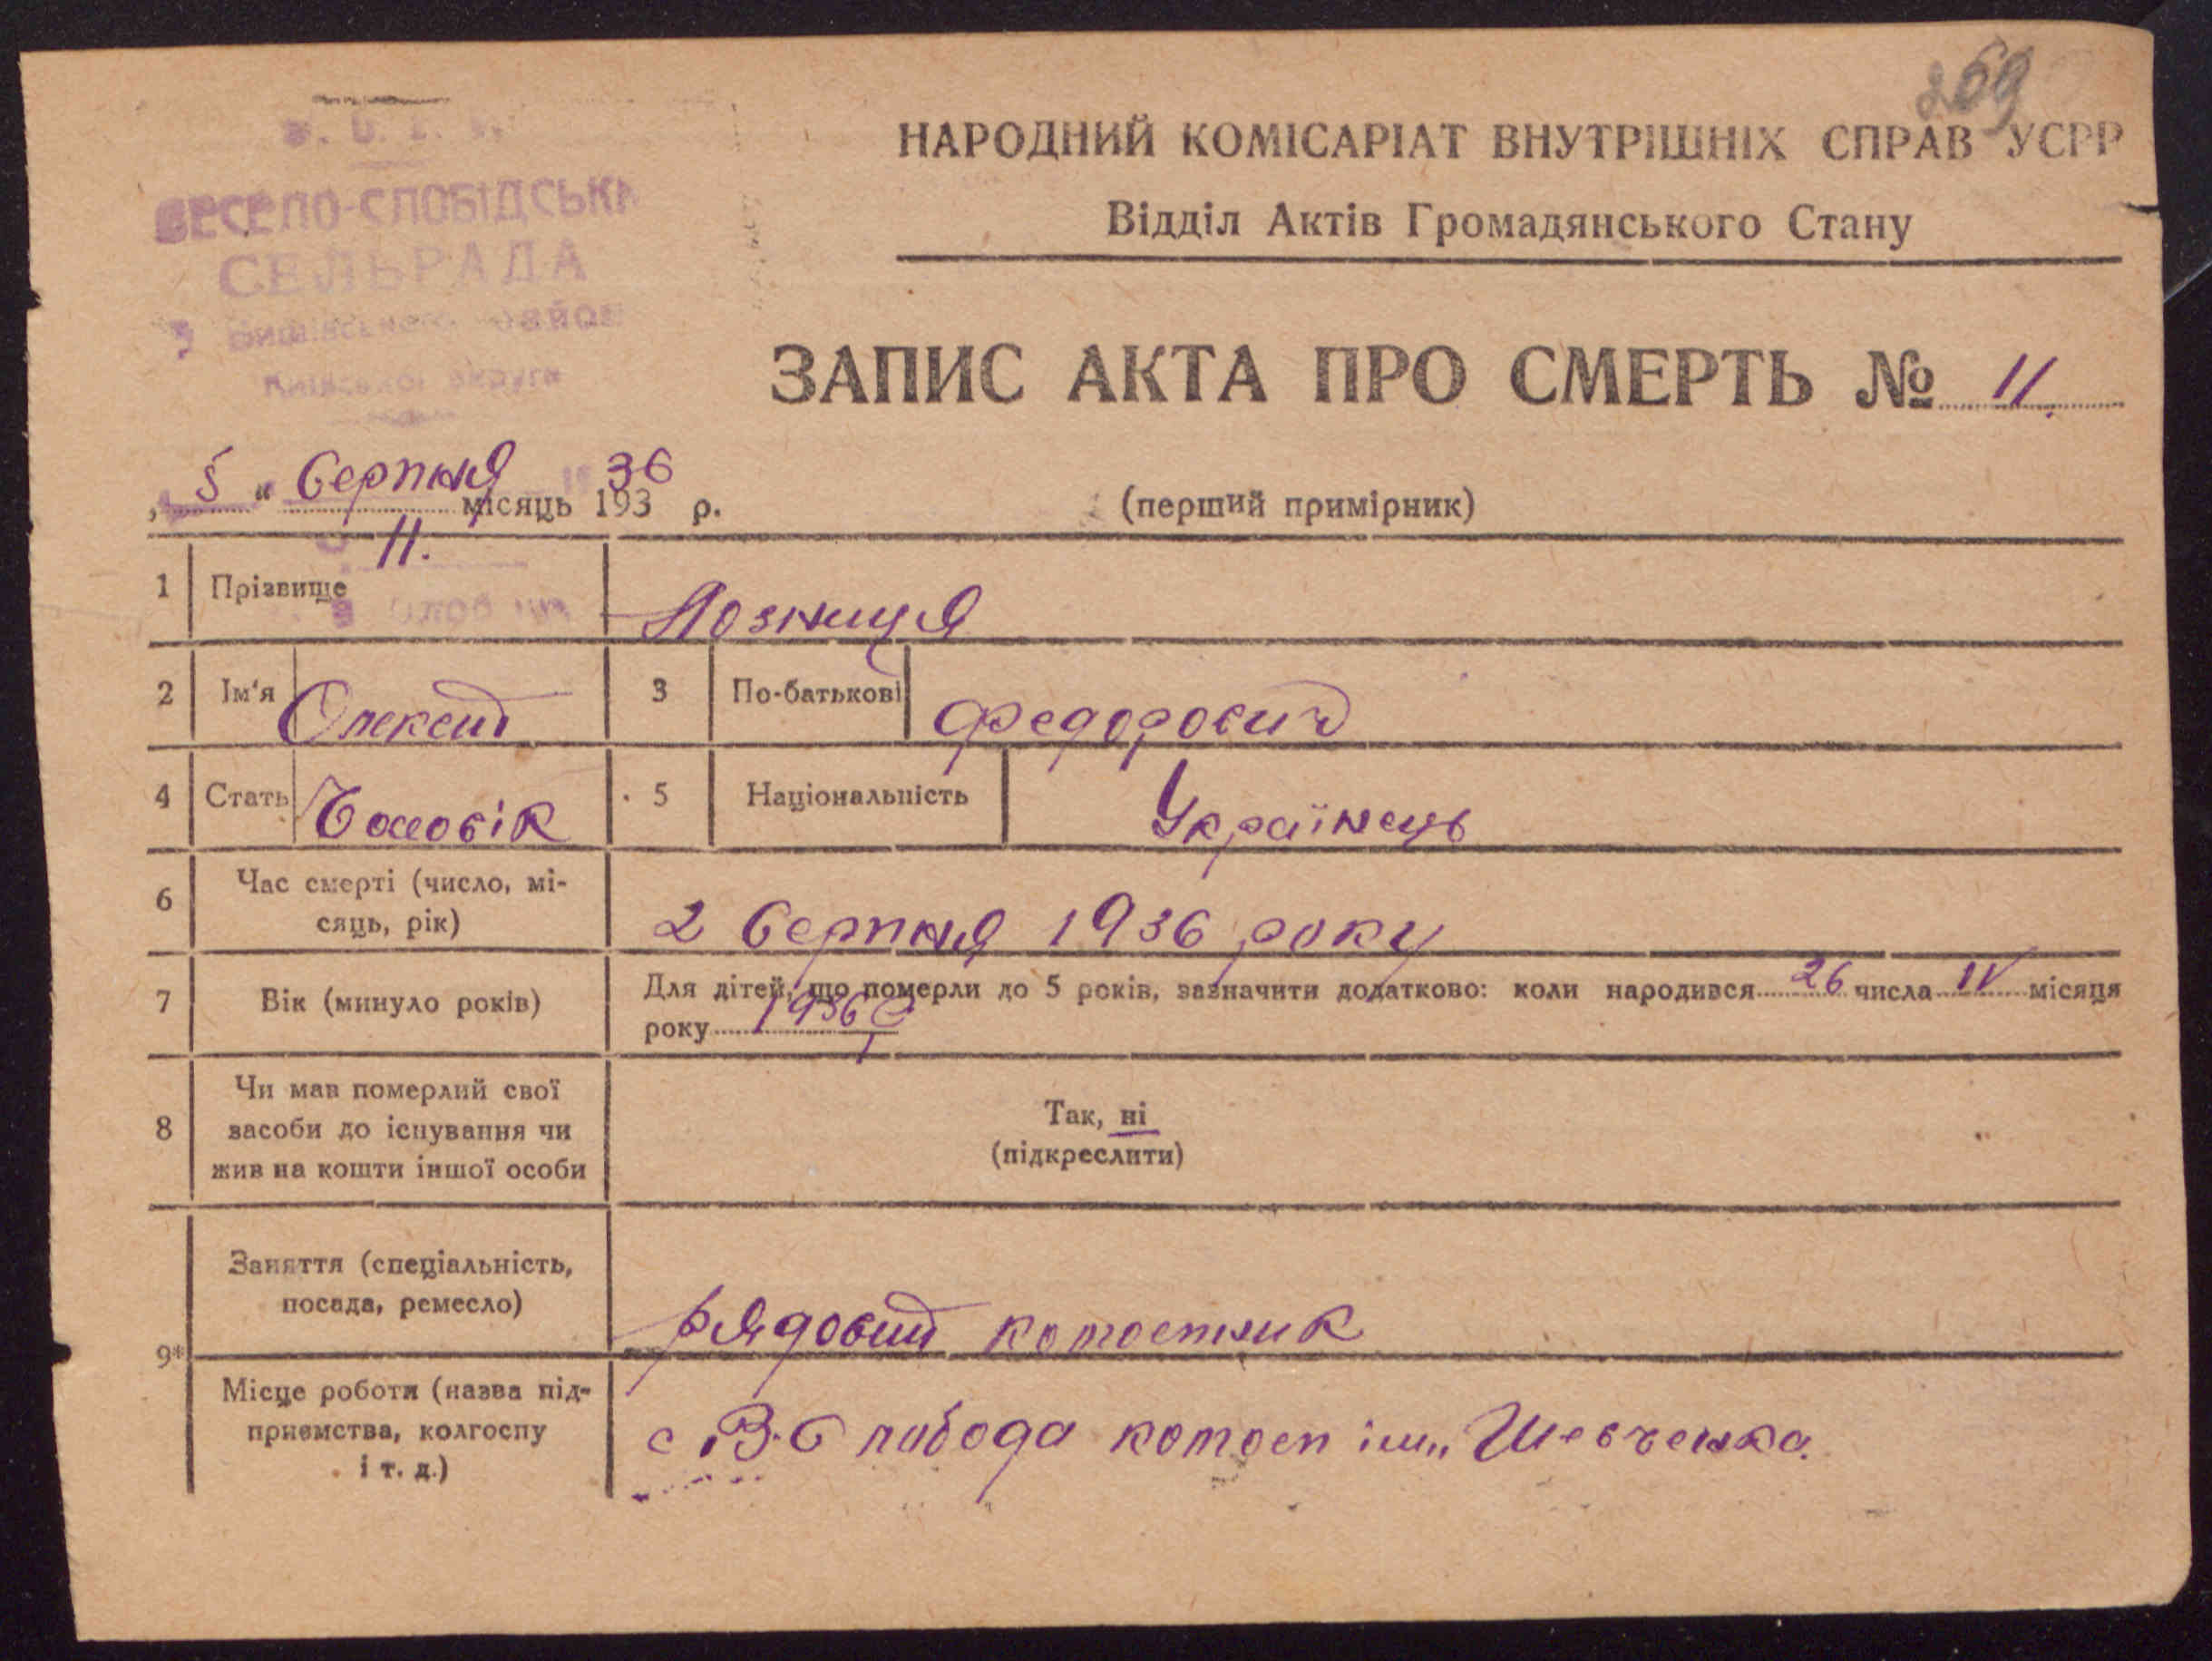 269
ВЕСЕЛО-СЛОБІДСЬКА
СЕЛЬРАДА
НАРОДНИЙ КОМІСАРІАТ ВНУТРІШНІХ СПРАВ УСРР
Відділ Актів Громадянського Стану
ЗАПИС АКТА ПРО СМЕРТЬ № 11.
„ 5 " Серпня місяць 193 36 р.
(перший примірник)
11.
1 Прізвище Лозниця
2 Ім'я Олексій 3 По-батькові Федорович
4 Стать Чоловік 5 Національність Українець
6 Час смерті (число, мі-
сяць, рік) 2 Серпня 1936 року
7 Вік (минуло років) Для дітей, що померли до 5 років, зазначити додатково: коли народився 26 числа IV місяця
року 1936 р
8 Чи мав померлий свої
засоби до існування чи
жив на кошти іншої особи
Так, ні
(підкреслити)
9* Заняття (спеціальність,
посада, ремесло) рядовий колоспник
Місце роботи (назва під-
приємства, колгоспу
і т. д.)
с В. Слобода колосп ім„ Шевченка.